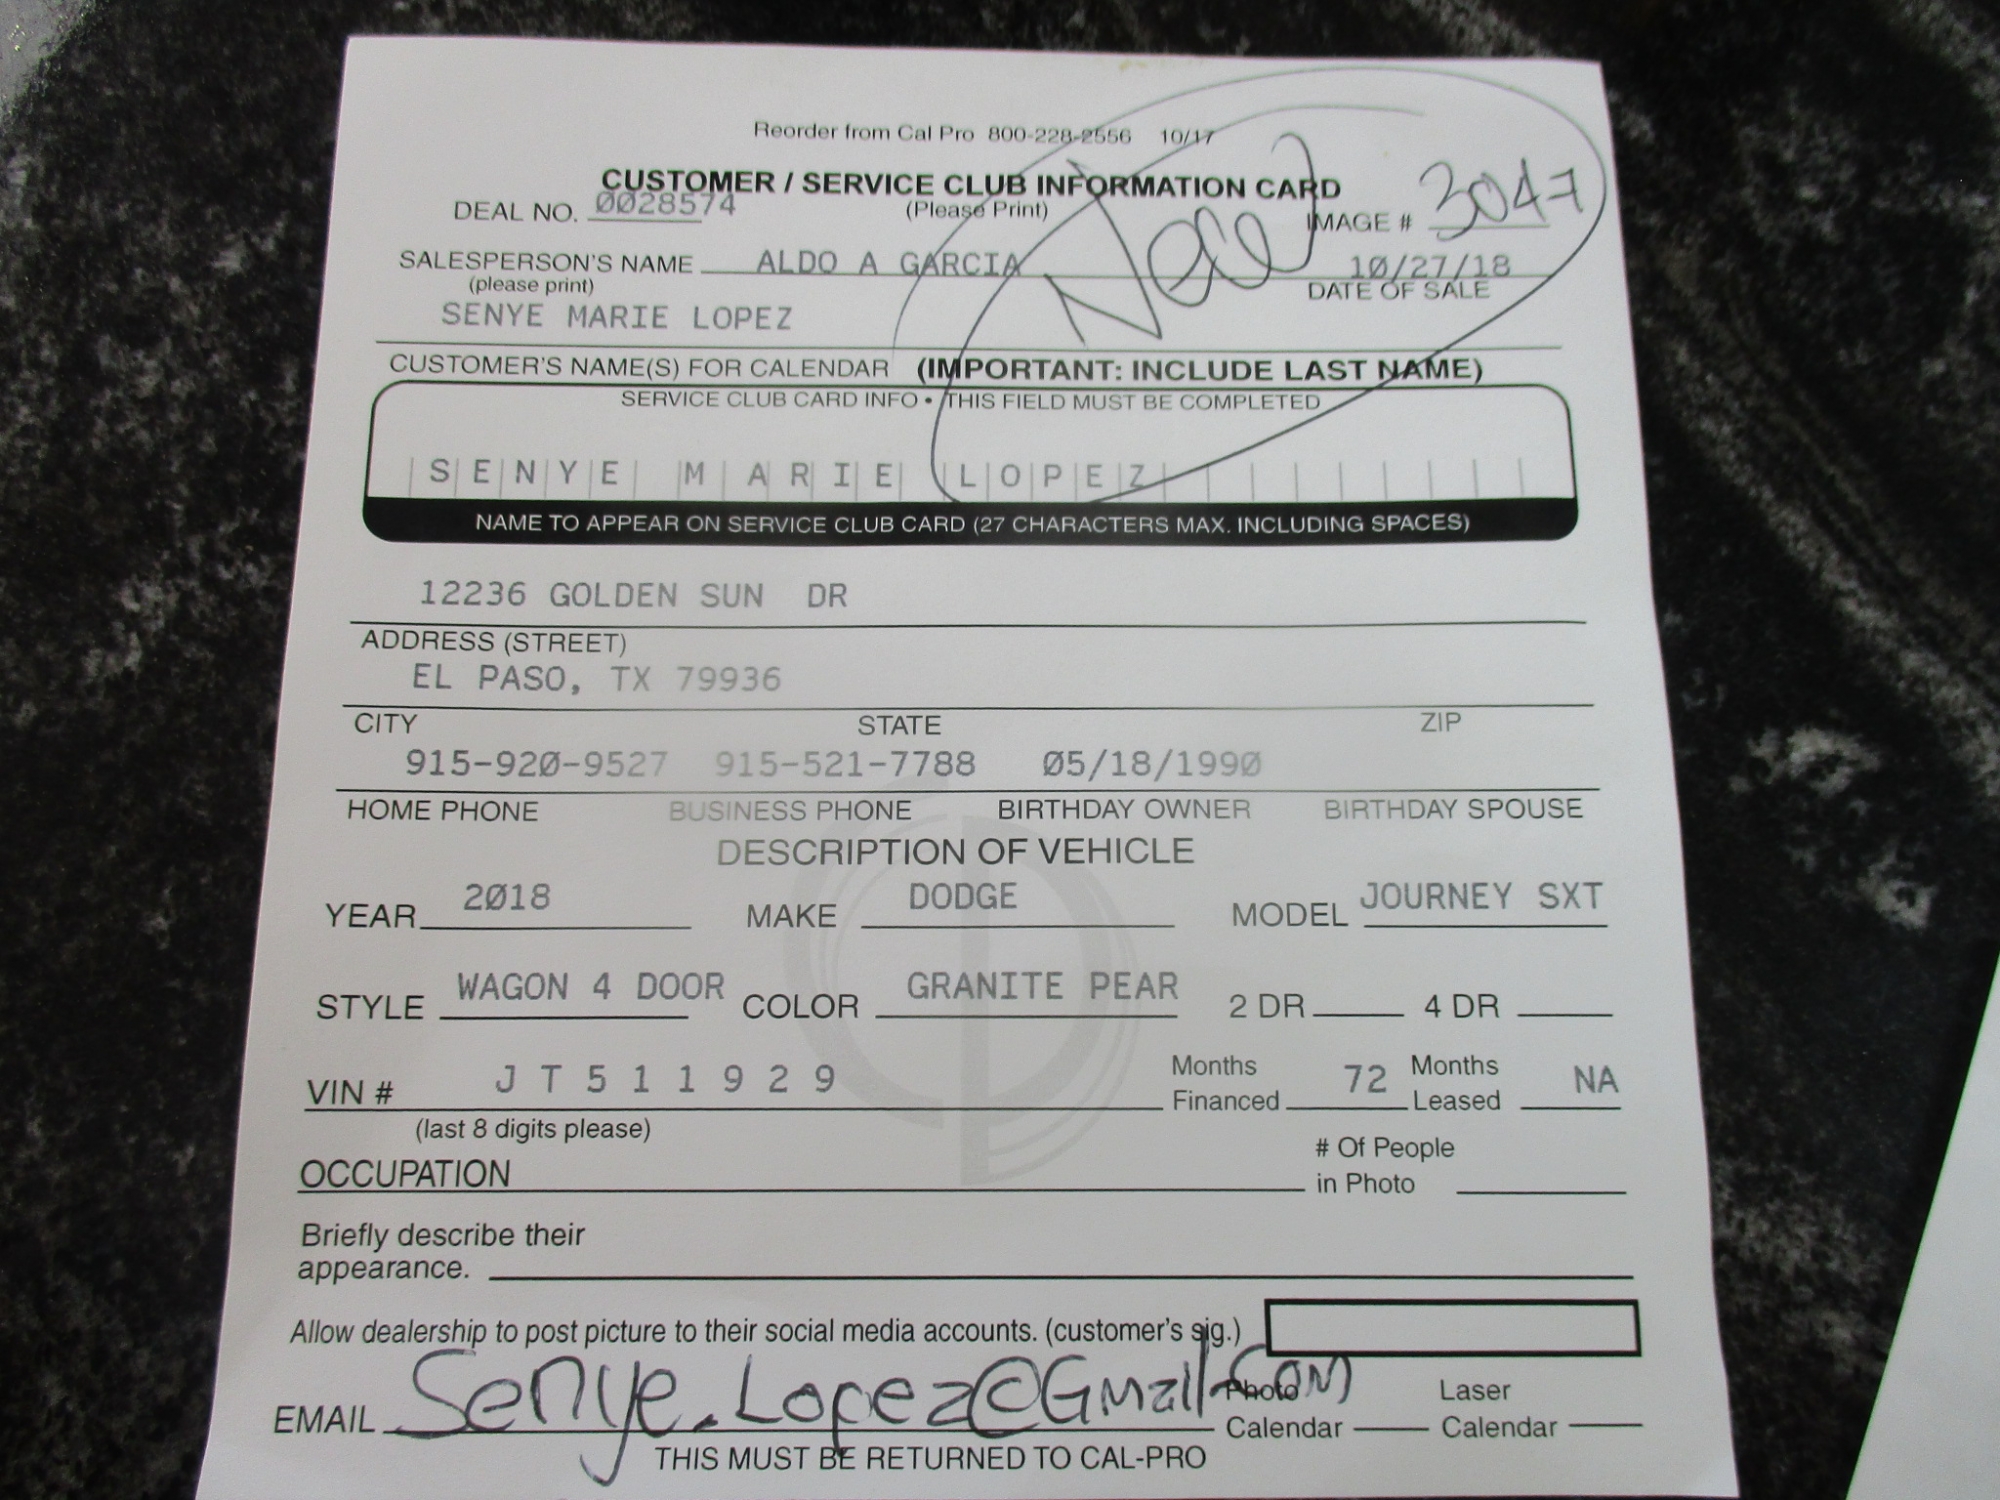 Reorder from Cal Pro 800-228-2556 10/17
CUSTOMER / SERVICE CLUB INFORMATION CARD
DEAL NO. 0028574 (Please Print) IMAGE # 3047
SALESPERSON'S NAME ALDO A GARCIA 10/27/18
(please print) DATE OF SALE
SENYE MARIE LOPEZ
CUSTOMER'S NAME(S) FOR CALENDAR (IMPORTANT: INCLUDE LAST NAME)
SERVICE CLUB CARD INFO • THIS FIELD MUST BE COMPLETED
SENYE MARIE LOPEZ
NAME TO APPEAR ON SERVICE CLUB CARD (27 CHARACTERS MAX. INCLUDING SPACES)
12236 GOLDEN SUN DR
ADDRESS (STREET)
EL PASO, TX 79936
CITY STATE ZIP
915-920-9527 915-521-7788 05/18/1990
HOME PHONE BUSINESS PHONE BIRTHDAY OWNER BIRTHDAY SPOUSE
DESCRIPTION OF VEHICLE
YEAR 2018 MAKE DODGE MODEL JOURNEY SXT
STYLE WAGON 4 DOOR COLOR GRANITE PEAR 2 DR 4 DR
VIN # JT511929 Months Financed 72 Months Leased NA
(last 8 digits please)
OCCUPATION # Of People in Photo
Briefly describe their
appearance.
Allow dealership to post picture to their social media accounts. (customer's sig.)
EMAIL Senye.Lopez@Gmail.com Photo Calendar Laser Calendar
THIS MUST BE RETURNED TO CAL-PRO